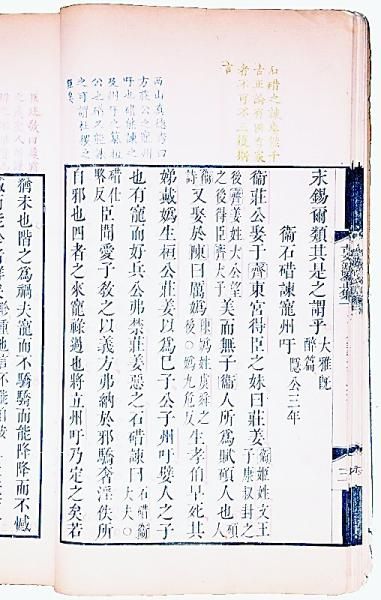 石碏之諫
古正論有國有家
者不可不三復斯
言
西山真德秀曰
方莊公寵州
吁也碏能諫之
之可謂社稷之
臣矣
永錫爾類其是之謂乎大雅既醉篇
衞石碏諫寵州吁隱公三年
衞莊公娶于齊東宮得臣之妹曰莊姜衞姬姓文王子康叔封之
後齊姜姓太公望之後得臣齊大子美而無子衞人所爲賦碩人也碩人
衞詩又娶於陳曰厲嬀陳嬀姓虞舜之後○嬀九危反生孝伯早死其
娣戴嬀生桓公莊姜以爲己子公子州吁嬖人之子
也有寵而好兵公弗禁莊姜惡之石碏諫曰石碏衞大夫○
臣聞愛子敎之以義方弗納於邪驕奢淫佚所
自邪也四者之來寵祿過也將立州吁乃定之矣若
猶未也階之爲禍夫寵而不驕驕而能降降而不憾